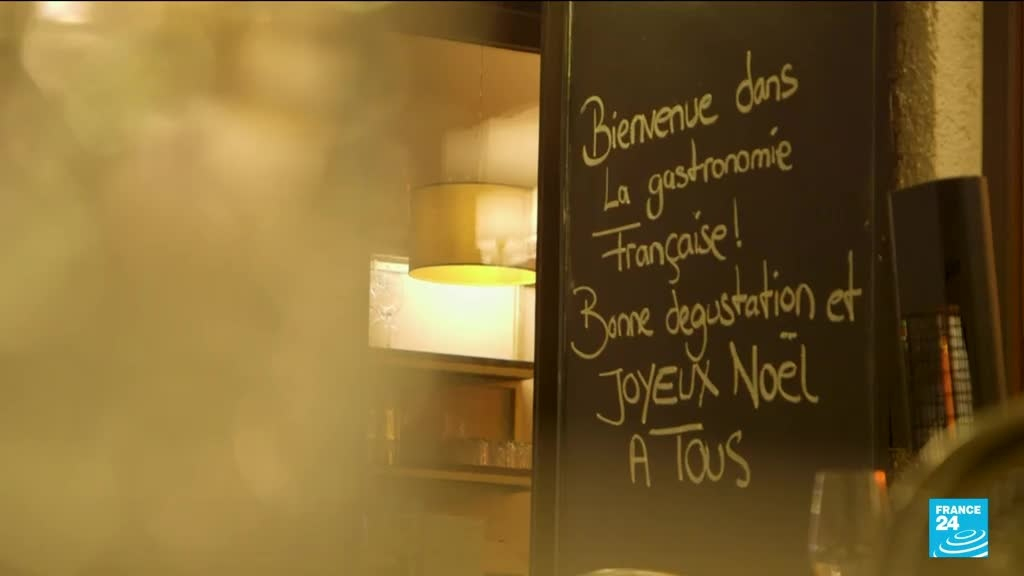 Bienvenue dans
La gastronomie
Française!
Bonne dégustation et
JOYEUX Noël
A TOUS
FRANCE
24